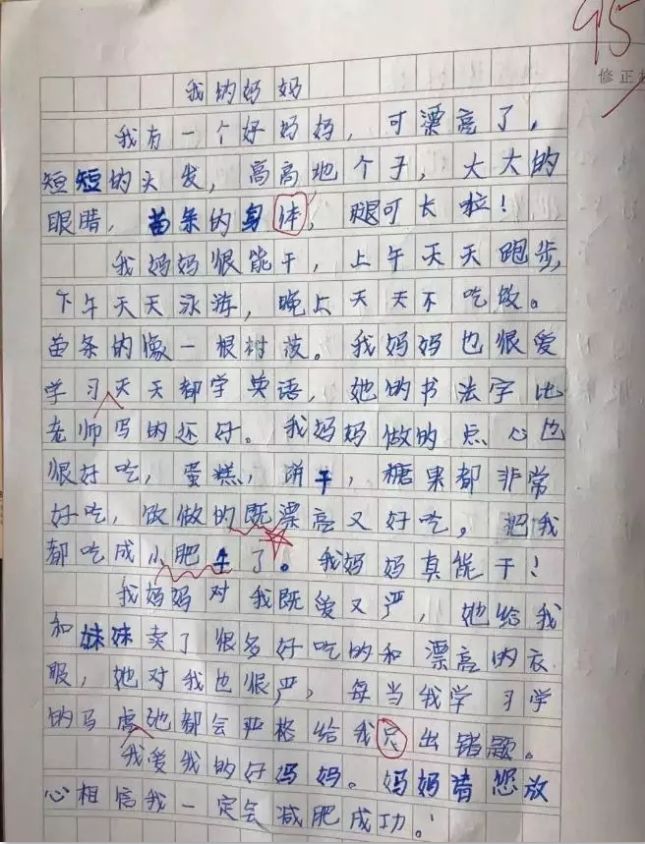 95
修正
我的妈妈
我有一个好妈妈，可漂亮了，
短短的头发，高高地个子，大大的
眼睛，苗条的身体，腿可长啦！
我妈妈很能干，上午天天跑步，
下午天天泳游，晚上天天不吃饭。
苗条的像一根树枝。我妈妈也很爱
学习天天都学英语，她的书法字比
老师写的还好。我妈妈做的点心也
很好吃，蛋糕，饼干，糖果都非常
好吃，饭做的既漂亮又好吃，把我
都吃成小肥牛了。我妈妈真能干！
我妈妈对我既爱又严，她给我
和妹妹卖了很多好吃的和漂亮的衣
服，她对我也很严，每当我学习学
的马虎她都会严格给我只出错题。
我爱我的好妈妈。妈妈请您放
心相信我一定会减肥成功。